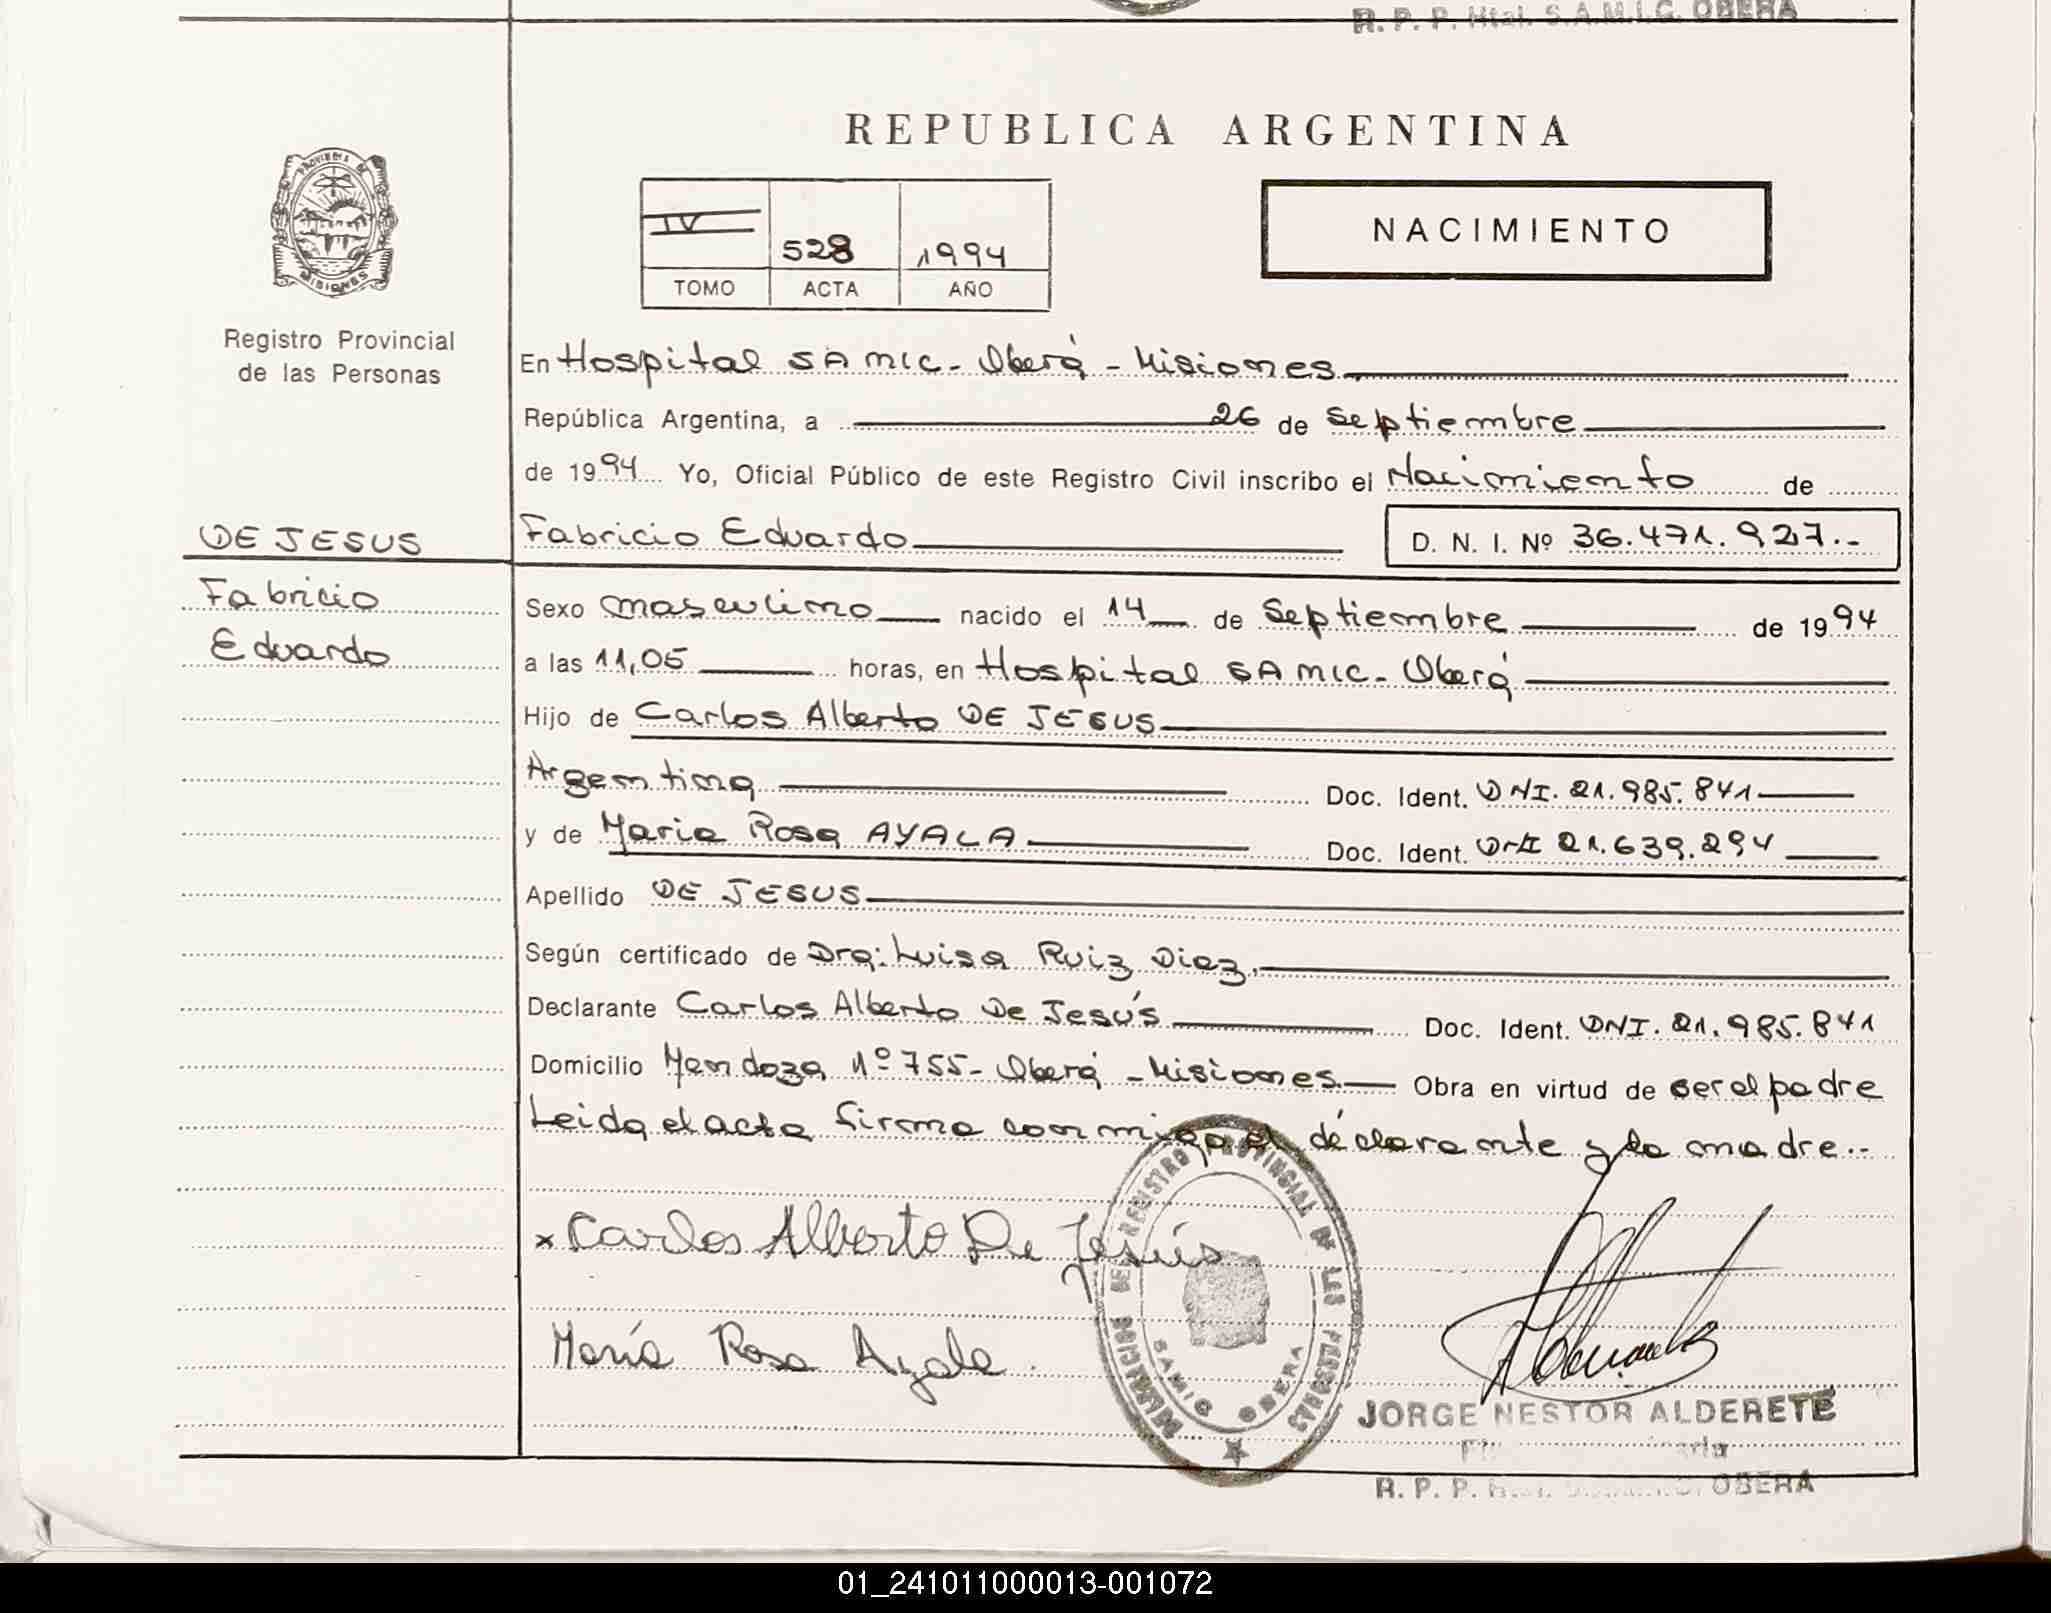 R. P. P. Htal. S.A.M.I.C. OBERA
REPUBLICA ARGENTINA
PROVINCIA DE
MISIONES
IV 528 1994
TOMO ACTA AÑO
NACIMIENTO
Registro Provincial
de las Personas
En Hospital SAMIC - Oberá - Misiones
República Argentina, a 26 de Septiembre
de 1994 Yo, Oficial Público de este Registro Civil inscribo el Nacimiento de
DE JESUS
Fabricio Eduardo D. N. I. Nº 36.471.927.-
Fabricio
Eduardo
Sexo masculino nacido el 14 de Septiembre de 1994
a las 11,05 horas, en Hospital SAMIC - Oberá
Hijo de Carlos Alberto DE JESUS
Argentina Doc. Ident. DNI. 21.985.841
y de Maria Rosa AYALA Doc. Ident. DNI 21.639.294
Apellido DE JESUS
Según certificado de Dra: Luisa Ruiz Diaz.
Declarante Carlos Alberto De Jesús Doc. Ident. DNI. 21.985.841
Domicilio Mendoza nº 755 - Oberá - Misiones Obra en virtud de ser el padre
Leida el acta firma conmigo el declarante y la madre.-
x Carlos Alberto De Jesús
María Rosa Ayala.
REGISTRO PROVINCIAL DE LAS PERSONAS
SAMIC OBERA
JORGE NESTOR ALDERETE
R. P. P. OBERA
01_241011000013-001072